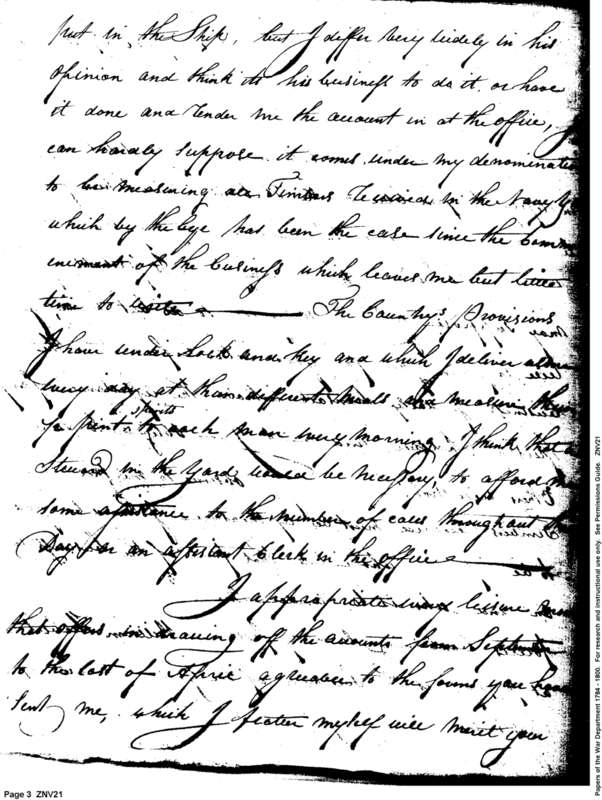 put in the Ship, but I differ very widely in his
opinion and think its his business to do it or have
it done and render me the account in at the office, I
can hardly suppose it comes under my denominatio
to be measuring all Timbers received in the Navy Y
which by the bye has been the case since the Comm
encement of the business which leaves me but little
time to write The Country's Provisions
I have under Lock and key and which I deliver
every day at their different meals
½ pint spirits to each man every morning. I think that a
Steward in the Yard would be necessary, to afford me
some assistance to the number of calls throughout the
Day or an assistant Clerk in the office
I appropriate every leisure
that offers in drawing of the accounts from September
to the last of April agreeable to the forms you have
Sent me, which I flatter myself will merit your
Page 3 ZNV21
Papers of the War Department 1784 - 1800. For research and instructional use only. See Permissions Guide. ZNV21